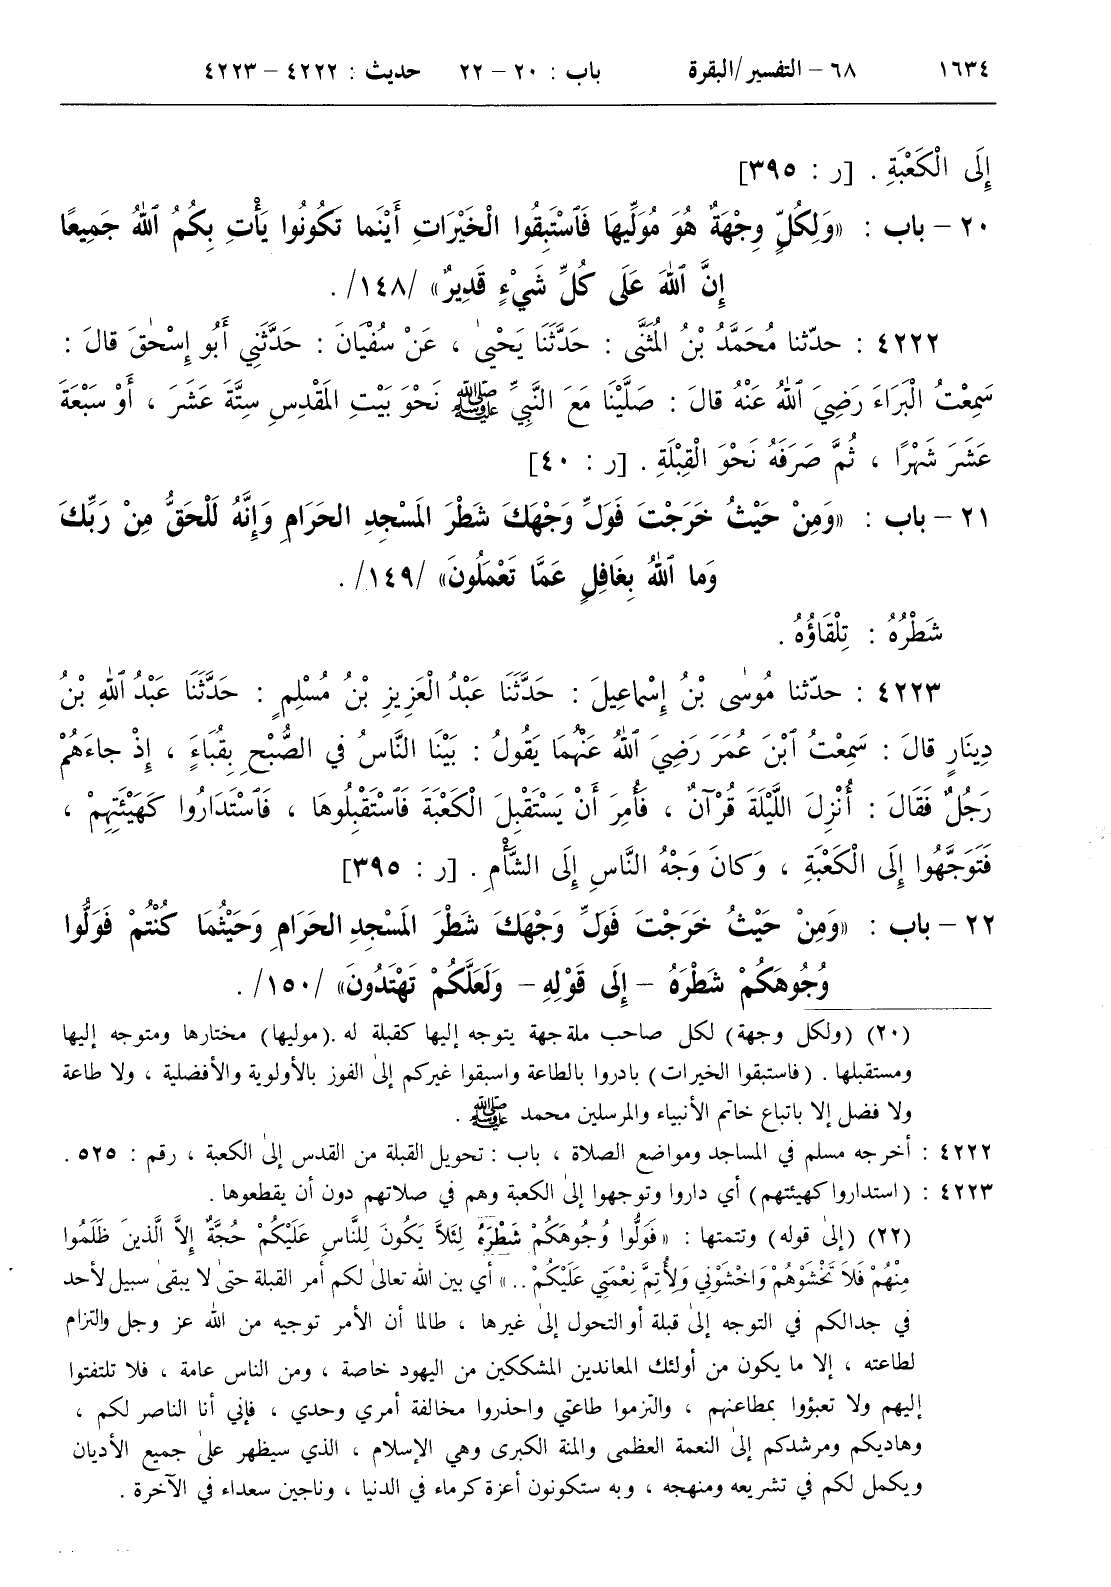 ١٦٣٤ ٦٨ – التفسير/البقرة باب : ٢٠ – ٢٢ حديث : ٤٢٢٢ – ٤٢٢٣
إِلَى الْكَعْبَةِ . [ر : ٣٩٥]
٢٠ – باب : «وَلِكُلٍّ وِجْهَةٌ هُوَ مُوَلِّيهَا فَٱسْتَبِقُوا الْخَيْرَاتِ أَيْنَما تَكُونُوا يَأْتِ بِكُمُ ٱللهُ جَمِيعًا
إِنَّ ٱللهَ عَلَى كُلِّ شَيْءٍ قَدِيرٌ» /١٤٨/ .
٤٢٢٢ : حدّثنا مُحَمَّدُ بْنُ المُثَنَّى : حَدَّثَنَا يَحْيىٰ ، عَنْ سُفْيَانَ : حَدَّثَنِي أَبُو إِسْحٰقَ قالَ :
سَمِعْتُ الْبَرَاءَ رَضِيَ ٱللهُ عَنْهُ قالَ : صَلَّيْنَا مَعَ النَّبِيِّ ﷺ نَحْوَ بَيْتِ المَقْدِسِ سِتَّةَ عَشَرَ ، أَوْ سَبْعَةَ
عَشَرَ شَهْرًا ، ثُمَّ صَرَفَهُ نَحْوَ الْقِبْلَةِ . [ر : ٤٠]
٢١ – باب : «وَمِنْ حَيْثُ خَرَجْتَ فَوَلِّ وَجْهَكَ شَطْرَ المَسْجِدِ الحَرَامِ وَإِنَّهُ لَلْحَقُّ مِنْ رَبِّكَ
وَما ٱللهُ بِغَافِلٍ عَمَّا تَعْمَلُونَ» /١٤٩/ .
شَطْرُهُ : تِلْقَاؤُهُ .
٤٢٢٣ : حدّثنا مُوسٰى بْنُ إِسْماعِيلَ : حَدَّثَنَا عَبْدُ الْعَزِيزِ بْنُ مُسْلِمٍ : حَدَّثَنَا عَبْدُ ٱللهِ بْنُ
دِينَارٍ قالَ : سَمِعْتُ ٱبْنَ عُمَرَ رَضِيَ ٱللهُ عَنْهُمَا يَقُولُ : بَيْنَا النَّاسُ فِي الصُّبْحِ بِقُبَاءٍ ، إِذْ جاءَهُمْ
رَجُلٌ فَقَالَ : أُنْزِلَ اللَّيْلَةَ قُرْآنٌ ، فَأُمِرَ أَنْ يَسْتَقْبِلَ الْكَعْبَةَ فَٱسْتَقْبِلُوهَا ، فَٱسْتَدَارُوا كَهَيْئَتِهِمْ ،
فَتَوَجَّهُوا إِلَى الْكَعْبَةِ ، وَكانَ وَجْهُ النَّاسِ إِلَى الشَّأْمِ . [ر : ٣٩٥]
٢٢ – باب : «وَمِنْ حَيْثُ خَرَجْتَ فَوَلِّ وَجْهَكَ شَطْرَ المَسْجِدِ الحَرَامِ وَحَيْثُمَا كُنْتُمْ فَوَلُّوا
وُجُوهَكُمْ شَطْرَهُ – إِلَى قَوْلِهِ – وَلَعَلَّكُمْ تَهْتَدُونَ» /١٥٠/ .
(٢٠) (ولكل وجهة) لكل صاحب ملة جهة يتوجه إليها كقبلة له .(موليها) مختارها ومتوجه إليها
ومستقبلها . (فاستبقوا الخيرات) بادروا بالطاعة واسبقوا غيركم إلى الفوز بالأولوية والأفضلية ، ولا طاعة
ولا فضل إلا باتباع خاتم الأنبياء والمرسلين محمد ﷺ .
٤٢٢٢ : أخرجه مسلم في المساجد ومواضع الصلاة ، باب : تحويل القبلة من القدس إلى الكعبة ، رقم : ٥٢٥ .
٤٢٢٣ : (استداروا كهيئتهم) أي داروا وتوجهوا إلى الكعبة وهم في صلاتهم دون أن يقطعوها .
(٢٢) (إلى قوله) وتتمتها : «فَوَلُّوا وُجُوهَكُمْ شَطْرَهُ لِئَلاَّ يَكُونَ لِلنَّاسِ عَلَيْكُمْ حُجَّةٌ إِلاَّ الَّذِينَ ظَلَمُوا
مِنْهُمْ فَلاَ تَخْشَوْهُمْ وَاخْشَوْنِي وَلِأُتِمَّ نِعْمَتِي عَلَيْكُمْ ..» أي بين الله تعالى لكم أمر القبلة حتى لا يبقى سبيل لأحد
في جدالكم في التوجه إلى قبلة أو التحول إلى غيرها ، طالما أن الأمر توجيه من الله عز وجل والتزام
لطاعته ، إلا ما يكون من أولئك المعاندين المشككين من اليهود خاصة ، ومن الناس عامة ، فلا تلتفتوا
إليهم ولا تعبؤوا بمطاعنهم ، والتزموا طاعتي واحذروا مخالفة أمري وحدي ، فإني أنا الناصر لكم ،
وهاديكم ومرشدكم إلى النعمة العظمى والمنة الكبرى وهي الإسلام ، الذي سيظهر على جميع الأديان
ويكمل لكم في تشريعه ومنهجه ، وبه ستكونون أعزة كرماء في الدنيا ، وناجين سعداء في الآخرة .